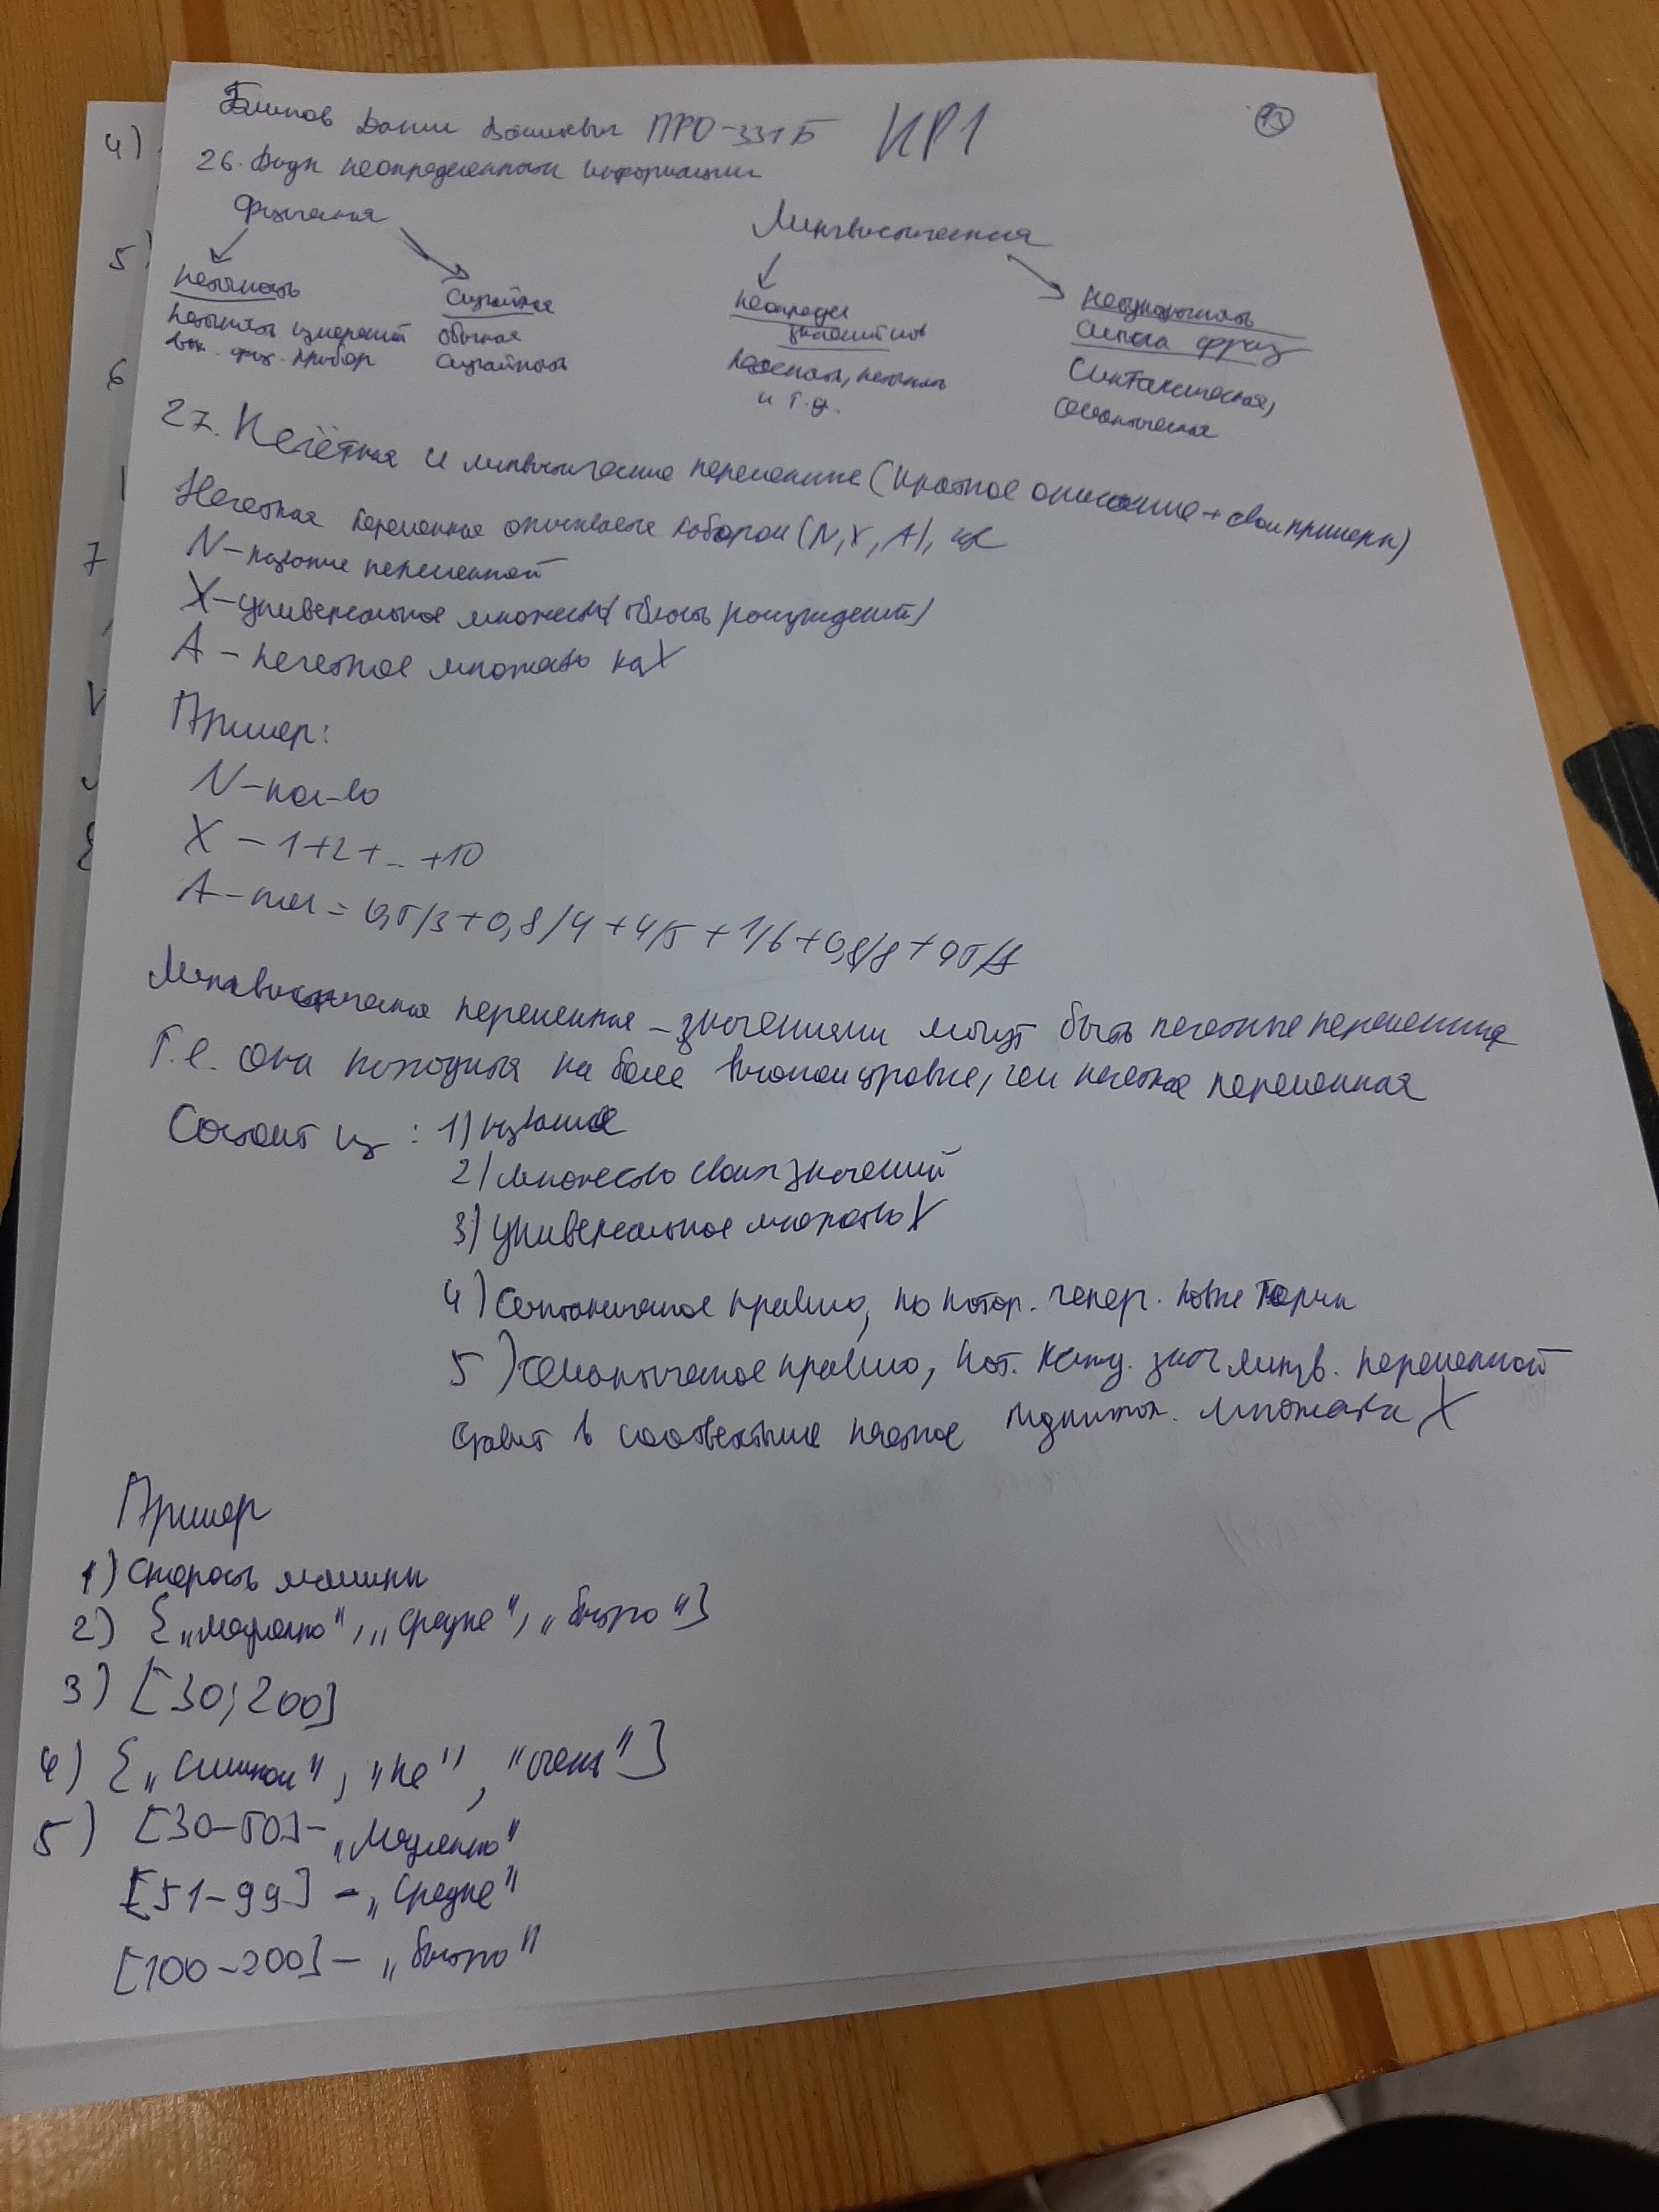 ПРО-331Б КР1
13
26. Виды неопределенности информации
Физическая
Лингвистическая
Неточность
Случайная
Неопредел
Неоднозначность
значений слов
смысла фраз
Неточность измерений
обычная
физ. прибор
случайность
неточность
и т.д.
Синтаксическая,
семантическая
27. Нечёткая и лингвистические переменные (краткое описание + свои примеры)
Нечеткая переменная описывается набором (N, X, A), где
N – название переменной
X – универсальное множество (область рассуждений)
A – нечеткое множество на X
Пример:
N – кол-во
X – 1+2+...+10
A – = 0,5/3+0,8/4+ + 1/6+0,8/8+
Лингвистическая переменная – значениями могут быть нечеткие переменные
Т.е. она находится на более высоком уровне, чем нечеткая переменная
Состоит из: 1) название
2) множество своих значений
3) универсальное множество X
4) Синтаксическое правило, по котор. генер. новые термы
5) семантическое правило, кот. кажд. знач лингв. переменной
ставит в соответствие нечеткое подмнож. множества X
Пример
1) Скорость машины
2) {„медленно“, „средне“, „быстро“}
3) [30; 200]
4) {„слишком“, „не“, „очень“}
5) [30-50] – „медленно“
[51-99] – „средне“
[100-200] – „быстро“
4)
5)
6
7